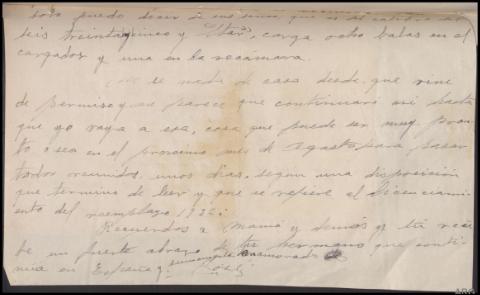 solo puedo decir
seis treinta y cinco y Star, carga ocho balas en el
cargador y una en la recámara.
de nada de esa desde que vine
de permiso y me parece que continuaré asi hasta
que yo vaya a esa, cosa que puede ser muy pron-
to o sea en el proximo mes de Agosto para pasar
todos reunidos unos dias, segun una disposición
que termino de leer y que se refiere al licenciami-
ento del reemplazo 193
Recuerdos a Mamá y demás y tú reci-
be un fuerte abrazo de tu hermano que conti-
nua en España y enamorado
José